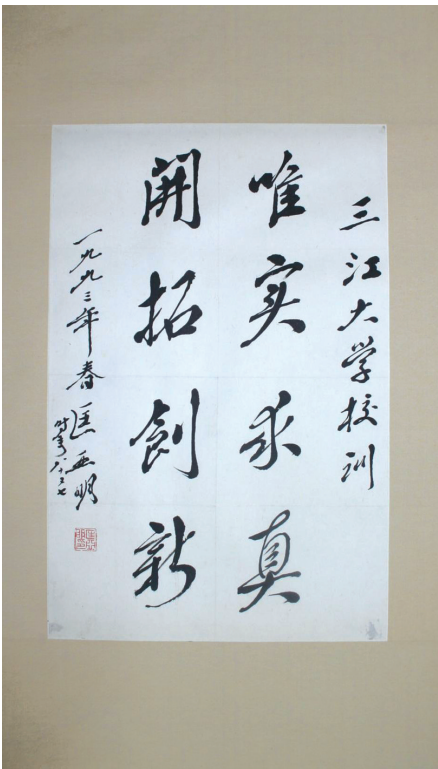 三江大学校训
唯实求真
開拓創新
一九九三年春匡亚明
时年八十又七